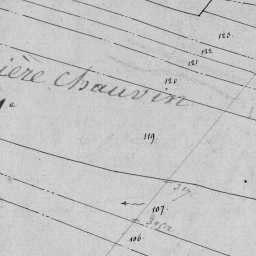 123
122
121
ière Chauvin
120
119
107
106